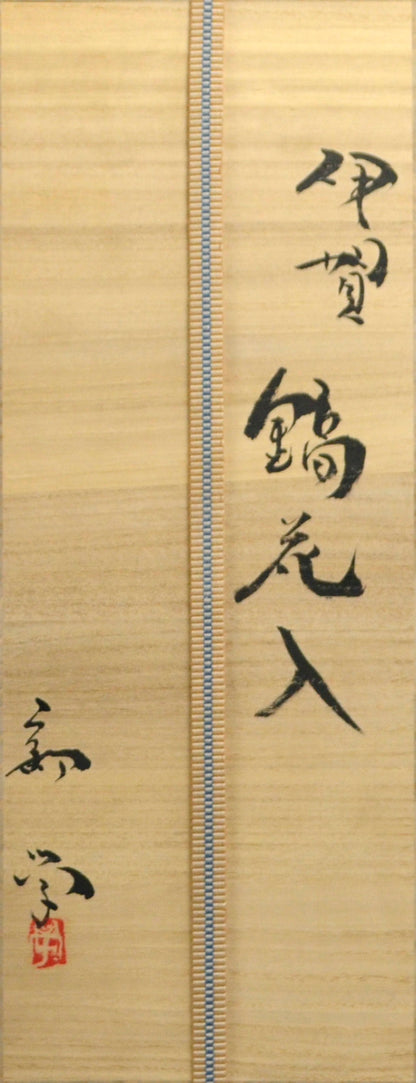 伊賀 鎬花入
新学